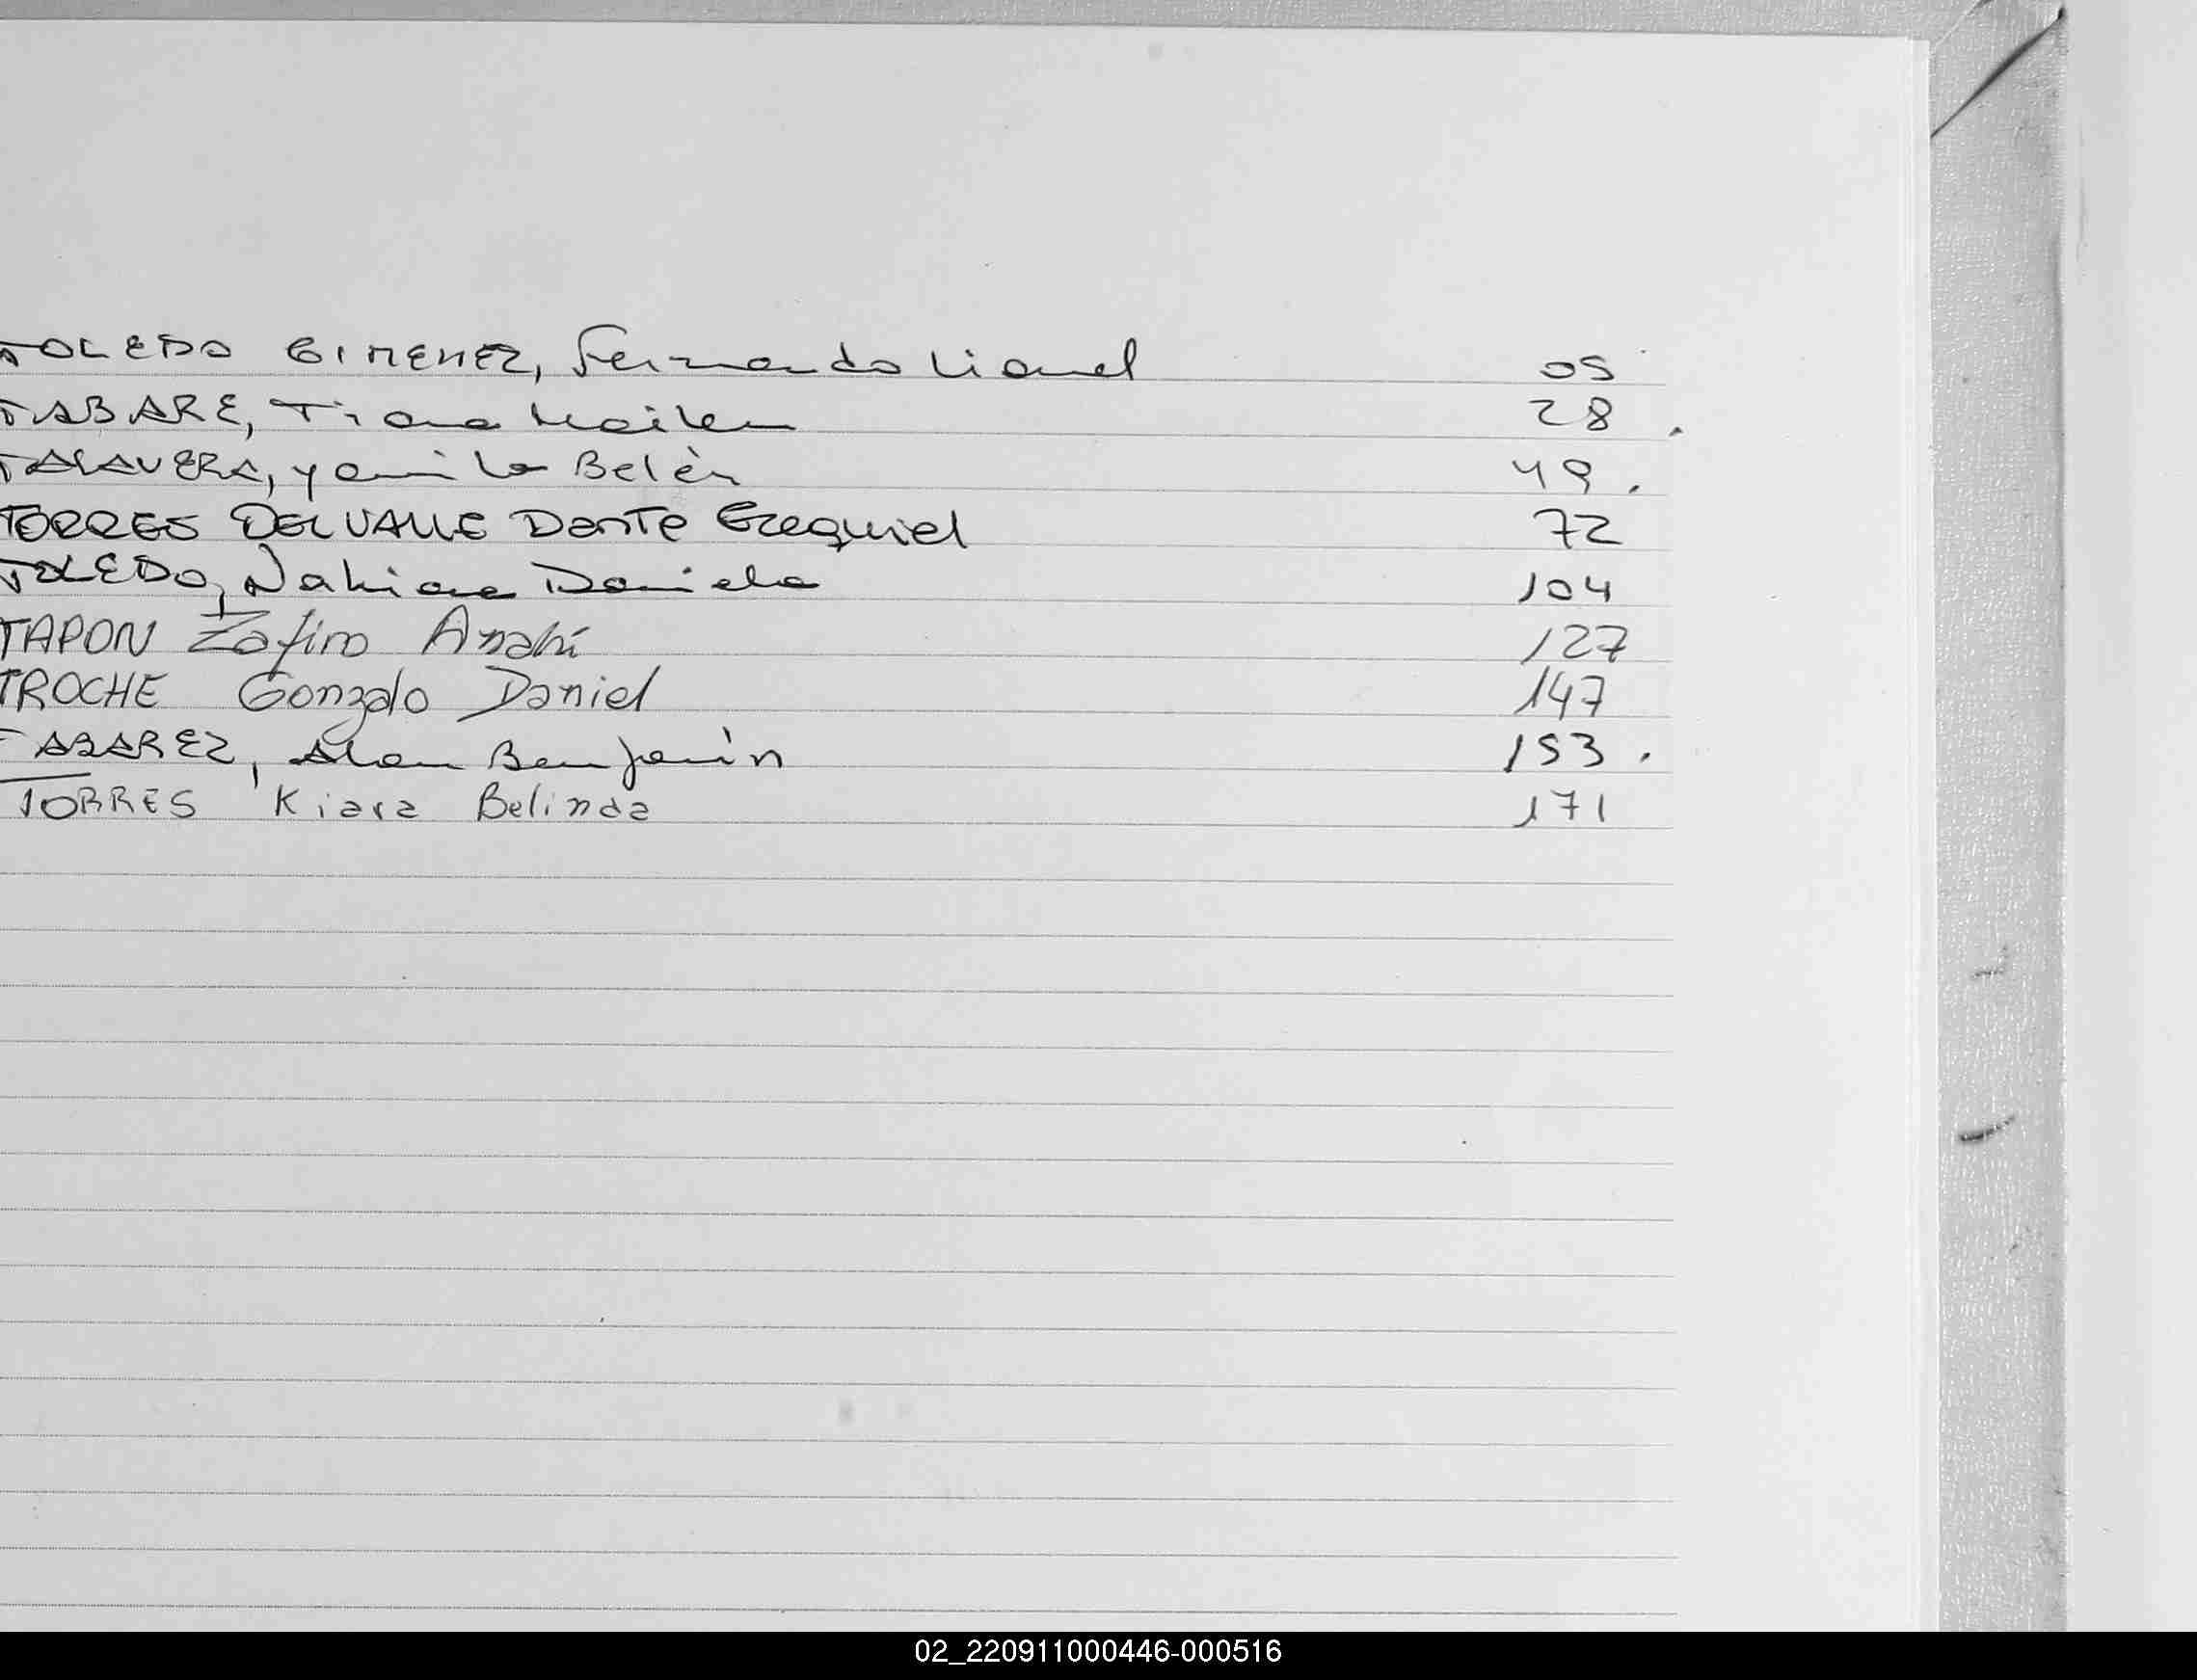 TOLEDO GIMENEZ, Fernando Lionel 05
TABARE, Tiana Mailen 28 .
TALAVERA, yamila Belèn 49 .
TORRES DELVALLE Dante Ezequiel 72
TOLEDO, Nahiara Daniela 104
TAPON Zafiro Anahí 127
TROCHE Gonzalo Daniel 147
TABAREZ, Alan Benjamín 153 .
TORRES Kiara Belinda 171
02_220911000446-000516